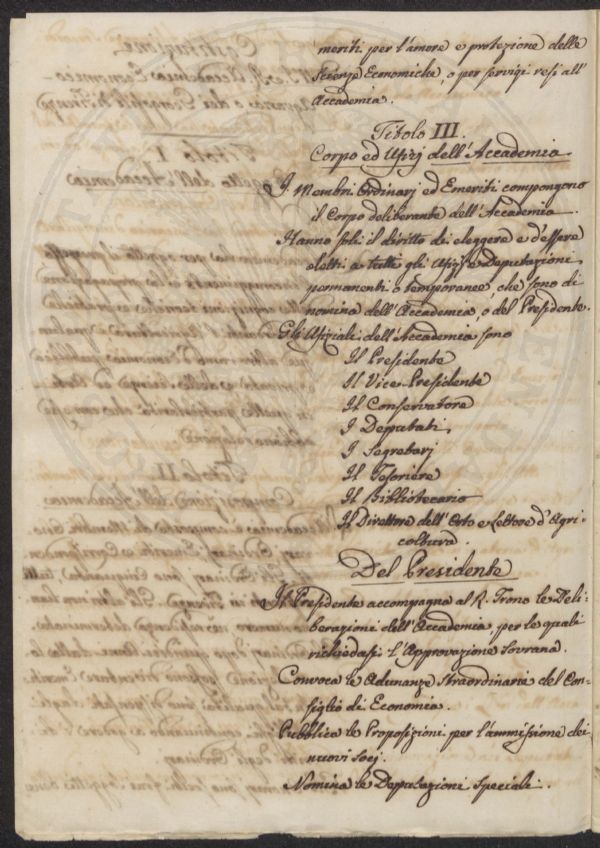 meriti per l'amore e protezione delle
Scienze Economiche, o per servigi resi all'
Accademia.
Titolo III.
Corpo ed Ufizj dell'Accademia
I Membri Ordinarj ed Emeriti compongono
il Corpo deliberante dell'Accademia.
Hanno soli il diritto di eleggere e d'essere
eletti a tutti gli Ufizj e Deputazioni
permanenti o temporanee che sono di
nomina dell'Accademia, o del Presidente.
Gli Ufiziali dell'Accademia sono
Il Presidente
Il Vice-Presidente
Il Conservatore
I Deputati
I Segretarj
Il Tesoriere
Il Bibliotecario
Il Direttore dell'Orto e Lettore d'Agri-
coltura.
Del Presidente
Il Presidente accompagna al R. Trono le Deli-
berazioni dell'Accademia per le quali
richiedasi l'Approvazione Sovrana.
Convoca le Adunanze straordinarie del Con-
siglio di Economia.
Pubblica le Proposizioni per l'ammissione dei
nuovi Socj.
Nomina le Deputazioni Speciali.